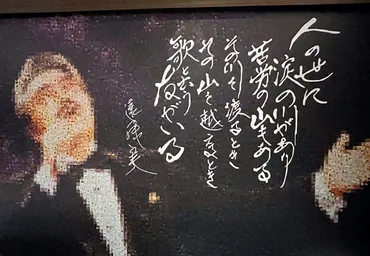 人の世に
涙の川があり
苦労の山もある
その川を渡るとき
その山を越えるとき
歌と云う
友がいる